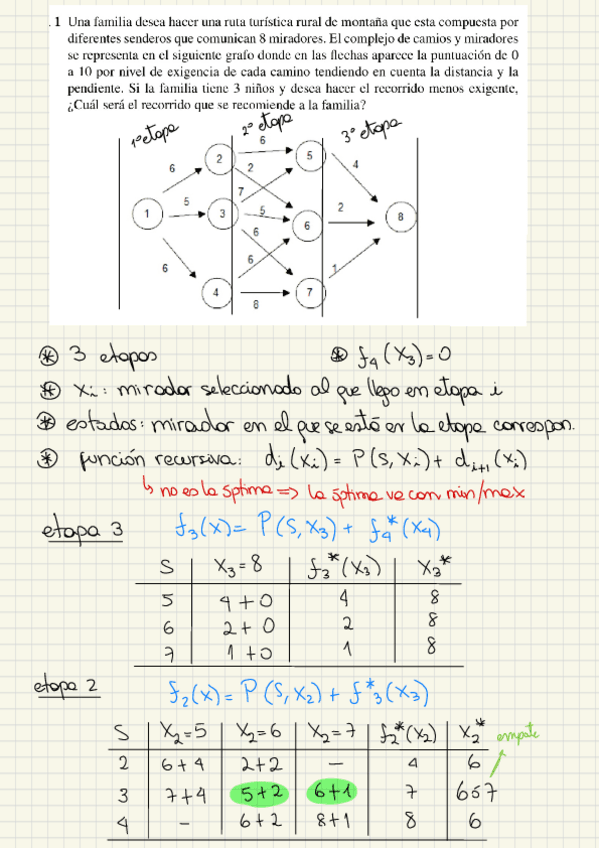 . 1 Una familia desea hacer una ruta turística rural de montaña que esta compuesta por
diferentes senderos que comunican 8 miradores. El complejo de camios y miradores
se representa en el siguiente grafo donde en las flechas aparece la puntuación de 0
a 10 por nivel de exigencia de cada camino tendiendo en cuenta la distancia y la
pendiente. Si la familia tiene 3 niños y desea hacer el recorrido menos exigente,
¿Cuál será el recorrido que se recomiende a la familia?
1º etapa 2º etapa 3º etapa
6
2 5
6 2 4
7
5 5 2
1 3 6 8
6
6 6 1
4 7
8
⊛ 3 etapas ⊛ f₄(x₃)=0
⊛ xᵢ: mirador seleccionado al que llego en etapa i
⊛ estados: mirador en el que se está en la etapa correspon.
⊛ función recursiva: dᵢ(xᵢ) = P(s,xᵢ) + dᵢ₊₁(xᵢ)
↳ no es la óptima => la óptima ve con min/max
etapa 3 f₃(x) = P(s,x₃) + f₄*(x₄)
S x₃=8 f₃*(x₃) x₃*
5 4+0 4 8
6 2+0 2 8
7 1+0 1 8
etapa 2 f₂(x) = P(s,x₂) + f*₃(x₃)
S x₂=5 x₂=6 x₂=7 f₂*(x₂) x₂* empate
2 6+4 2+2 — 4 6
3 7+4 5+2 6+1 7 6ó7
4 - 6+2 8+1 8 6